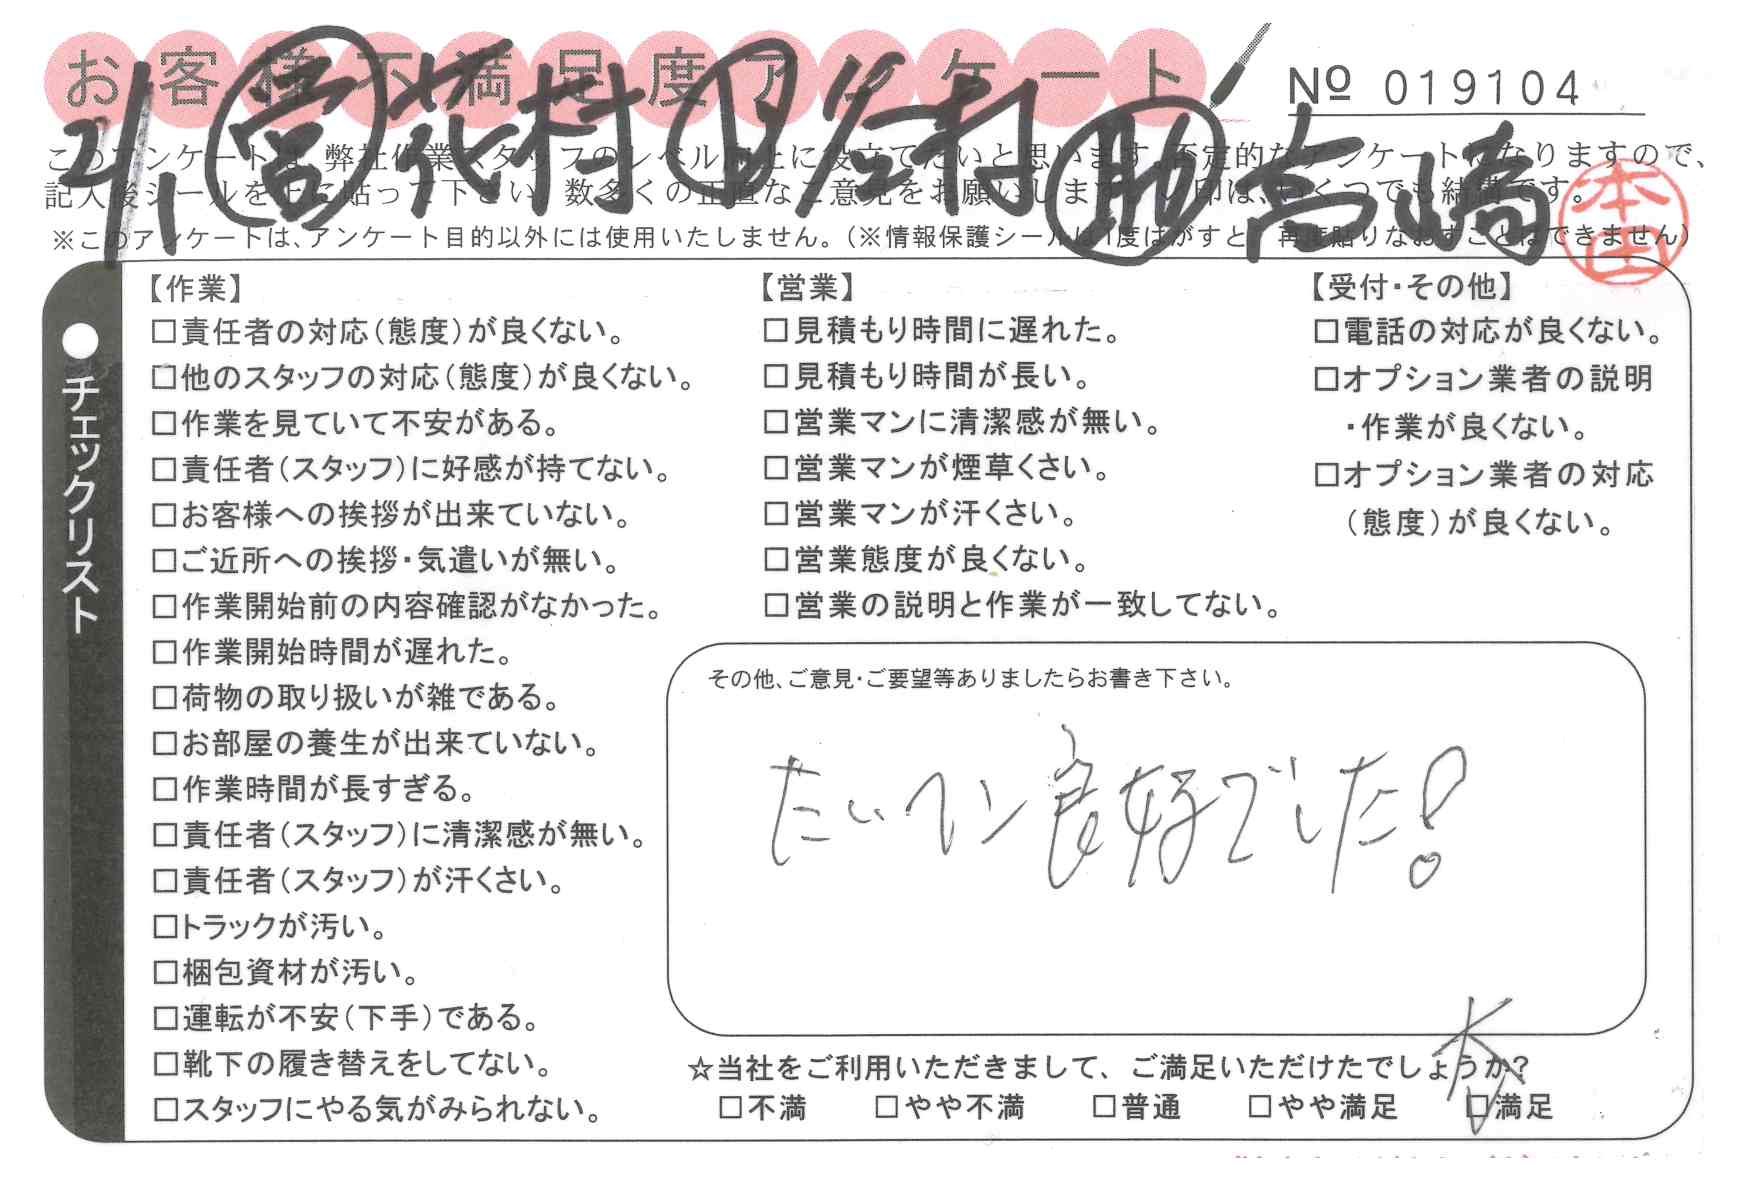 お客様不満足度アンケート
№ 019104
2/1 営 花村 日 谷村 助 高崎
このアンケートは、弊社作業スタッフのレベル向上に役立てたいと思います。否定的なアンケートになりますので、
記入後シールを上に貼って下さい。数多くの正直なご意見をお願いします。レ印は、いくつでも結構です。
本田
※このアンケートは、アンケート目的以外には使用いたしません。(※情報保護シールは1度はがすと、再度貼りなおすことはできません)
●チェックリスト
【作業】
□責任者の対応(態度)が良くない。
□他のスタッフの対応(態度)が良くない。
□作業を見ていて不安がある。
□責任者(スタッフ)に好感が持てない。
□お客様への挨拶が出来ていない。
□ご近所への挨拶・気遣いが無い。
□作業開始前の内容確認がなかった。
□作業開始時間が遅れた。
□荷物の取り扱いが雑である。
□お部屋の養生が出来ていない。
□作業時間が長すぎる。
□責任者(スタッフ)に清潔感が無い。
□責任者(スタッフ)が汗くさい。
□トラックが汚い。
□梱包資材が汚い。
□運転が不安(下手)である。
□靴下の履き替えをしてない。
□スタッフにやる気がみられない。
【営業】
□見積もり時間に遅れた。
□見積もり時間が長い。
□営業マンに清潔感が無い。
□営業マンが煙草くさい。
□営業マンが汗くさい。
□営業態度が良くない。
□営業の説明と作業が一致してない。
【受付・その他】
□電話の対応が良くない。
□オプション業者の説明
・作業が良くない。
□オプション業者の対応
(態度)が良くない。
その他、ご意見・ご要望等ありましたらお書き下さい。
たいヘン良好でした!
☆当社をご利用いただきまして、ご満足いただけたでしょうか?
□不満 □やや不満 □普通 □やや満足 □満足